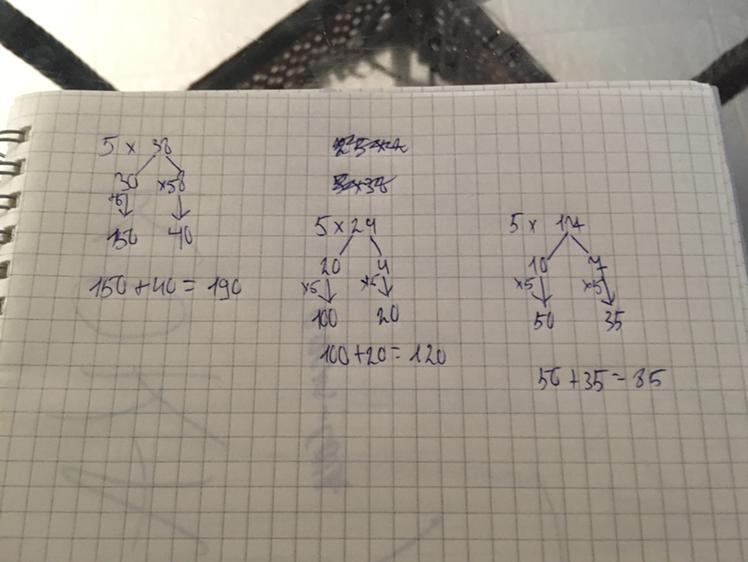 5 x 38
30 8
x5 x5
150 40
150 + 40 = 190
5 x 24
20 4
x5 x5
100 20
100 + 20 = 120
5 x 17
10 7
x5 x5
50 35
50 + 35 = 85